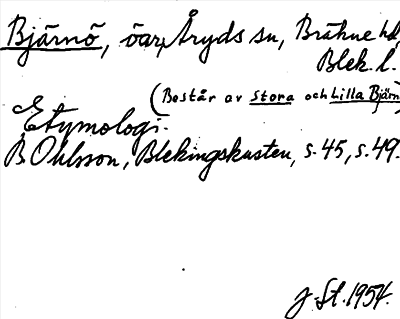 Bjärnö, öar, Åryds sn, Bräkne hd,
Blek. l.
(Består av Stora och Lilla Bjärnö)
Etymologi:
B Ohlsson, Blekingskusten, s. 45, s. 49.
J. St. 1954.